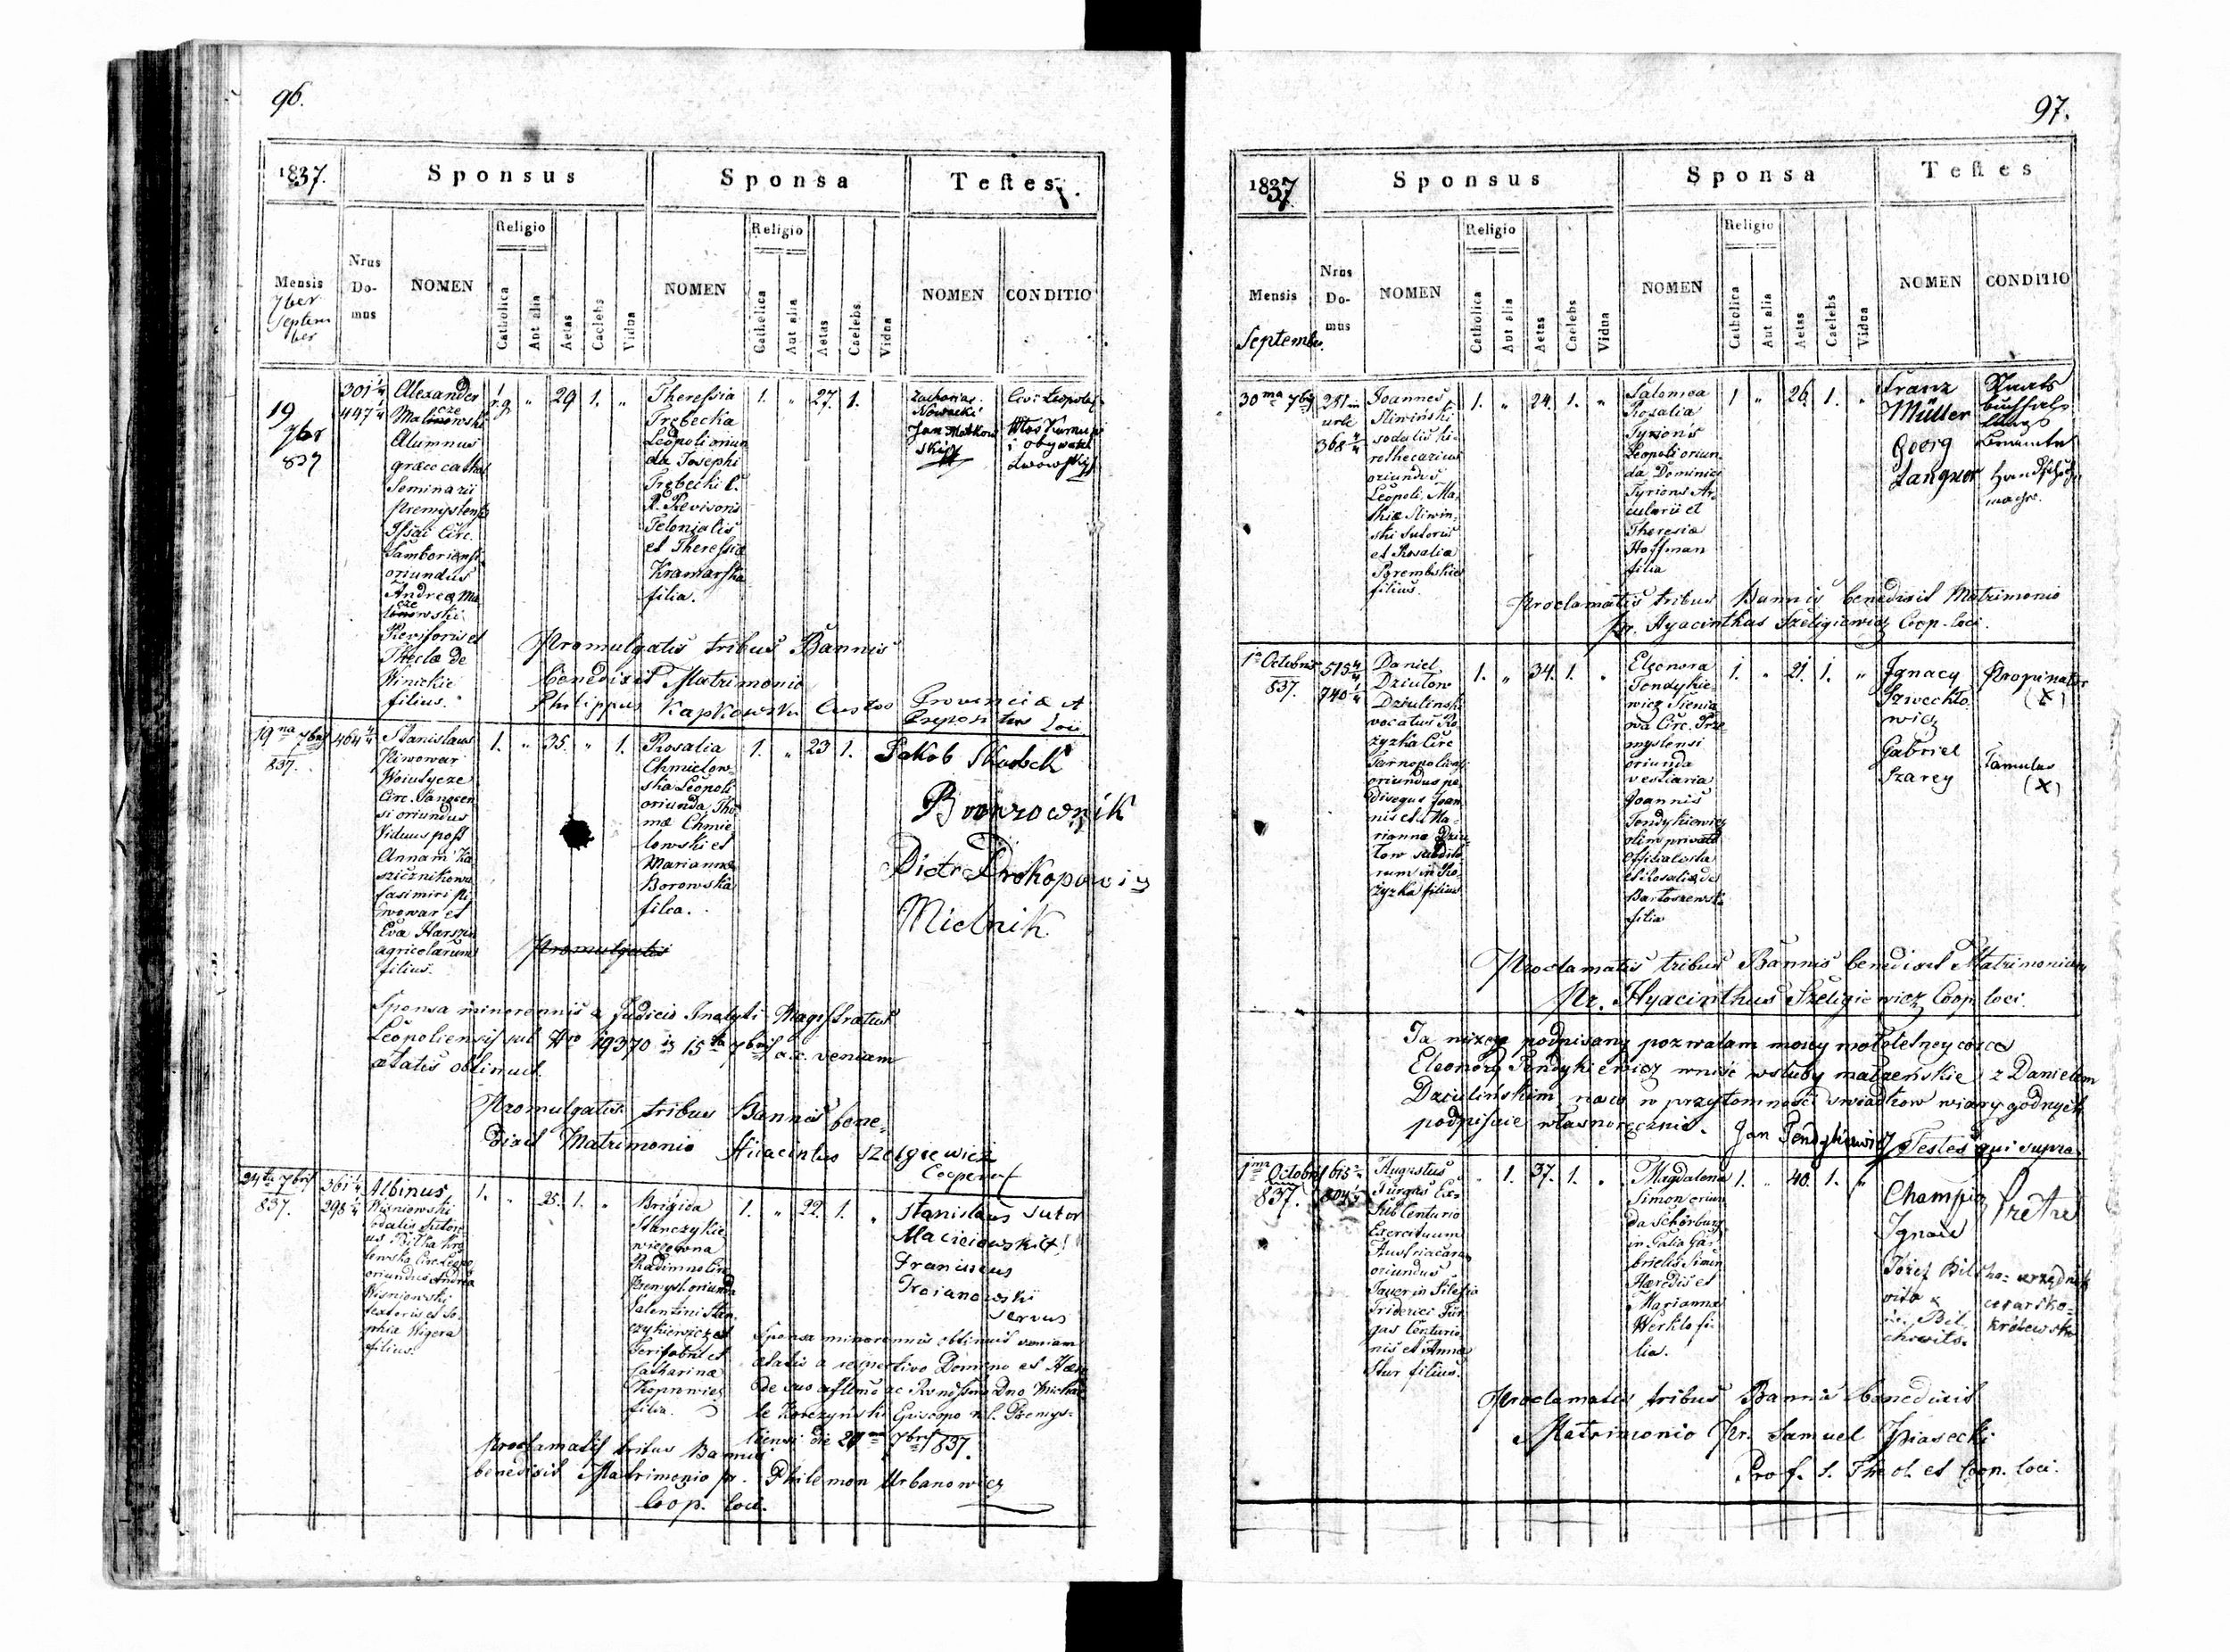 96.
1837.
Sponsus
Sponsa
Testes
Mensis
7ber
Septem
ber
Nrus
Do-
mus
NOMEN
Religio
Catholica
Aut alia
Aetas
Caelebs
Vidua
NOMEN
Religio
Catholica
Aut alia
Aetas
Caelebs
Vidua
NOMEN
CONDITIO
19
7br
837
301 1/4
447 1/4
Alexander
Malinowski
cze
Alumnus
græco cathol
Seminarii
Premyslens
Circ.
Samboriensi
oriundus
Andreæ Ma
owski
Revisoris et
Theclæ de
Winickie
filius.
1.
r.g.
"
29
1.
"
Theressia
Trębecka
Leopoli oriun
da Josephi
Trębecki C.
R. Revisoris
Telonialis
et Theressiæ
Kramarska
filia.
1.
"
27.
1.
Zacharias
Nowacki
Jan Matkow
ski
Civis Leopolis
i obywatel
Lwowski
Promulgatis tribus Bannis
benedixit Matrimonio
Philippus Kapkowski Custos Provinciæ et
Prepositus Loci
19na 7bris
837.
464 4/4
Stanislaus
Piwowar
Woiutycze
Circ. Sanocen
si oriundus
Viduus post
Annam Ka
sicznikowa
Casimiri Pi
wowar et
Eva Harszin
agricolarum
filius.
1.
"
35.
"
1.
Rosalia
Chmielow
ska Leopoli
oriunda Tho
mæ Chmie
lowski et
Mariannæ
Borowska
filia.
1.
"
23
1.
Jakob Skubek
Browarownik
Piotr Prokopowicz
Mielnik
Promulgatis
Sponsa minorennis a Judicio Inclyti Magistratus
Leopoliensis sub Nro 19370 is 15ta 7bris a.c. veniam
ætatis obtinuit.
Promulgatis tribus Bannis bene-
dixit Matrimonio Hiacintus Szeligiewicz
Cooperat
24ta 7bris
837.
361 1/4
298 1/4
Albinus
Wisniowski
sodalis Sutori
us Biłka kro
lewska Circ. Leopo
oriundus Andrea
Wisniowski
textoris et So
phia Wigera
filius.
1.
"
25.
1.
"
Brigida
Stanczykie
wiczowna
Radimno Circ
Premysl. oriunda
Valentini Stan
czykiewicz et
Catharina
Kopiewicz
filia.
1.
"
22.
1.
"
Stanislaus Sutor
Maciciowski +
Franciscus
Troianowski
Servus
Sponsa minorennis obtinuit veniam
ætatis a respectivo Domino et Hære
de suo Illmo ac Rvndissmo Dno Micha
le Korczynski Episcopo r.l. Premys-
liensi die 20ma 7bris 837.
Proclamatis tribus Bannis
benedixit Matrimonio pr. Philemon Urbanowicz
Coop. loci.
97.
1837
Sponsus
Sponsa
Testes
Mensis
Septembr.
Nrus
Do-
mus
NOMEN
Religio
Catholica
Aut alia
Aetas
Caelebs
Vidua
NOMEN
Religio
Catholica
Aut alia
Aetas
Caelebs
Vidua
NOMEN
CONDITIO
30ma 7bris
251 in
urbe
368 4/4
Joannes
Sliwiński
sodalis chi-
rothecarius
oriundus
Leopoli. Ma-
thiæ Sliwin-
ski Sutoris
et Rosalia
Porembskie
filius.
1.
"
24.
1.
"
Salomea
Rosalia
Tyrionis
Leopoli oriun
da Dominici
Tyrions Ar
cularii et
Theresia
Hoffman
filia
1
"
26.
1.
"
Franz
Müller
Georg
Langner
Staats
buchhal-
tungs
Beamter
Handschuh
macher.
Proclamatis tribus Bannis benedixit Matrimonio
Pr. Hyacinthus Szeligiewicz Coop. loci.
1a Octobris
837.
515 4/4
740 1/4
Daniel
Dziulow
Dziulinski
vocatus Ro
żyzka Circ
Tarnopoliensi
oriundus pe
disequs Joan
nis et Ma-
rianna Dziu
low subdito
rum in Ro-
żyzka filius
1.
"
34.
1.
"
Eleonora
Tendykie-
wicz Sienia
wa Circ. Prze
myslensi
oriunda
vestiaria
Joannis
Tendykiewicz
olim privati
officialista
et Rosalia de
Bartoszewski
filia
1.
"
21.
1.
"
Ignacy
Szwechło
wicz
Gabriel
Szarey
Propinator
(X)
Famulus
(X)
Proclamatis tribus Bannis benedixit Matrimonium
Pr. Hyacinthus Szeligiewicz Coop. loci.
Ja niżey podpisany pozwalam moiey małoletney corce
Eleonory Tendykiewicz wniść w śluby małżeńskie z Danielem
Dziulińskim, na co w przytomności swiadkow wiary godnych
podpisuie własnoręcznie. Jan Tendykiewicz Testes qui supra
1ma Octobris
837.
615 2/4
804 1/4
Augustus
Türgas Ex-
Sub Centurio
Exercituum
Austriacarum
oriundus
Jauer in Silesia
Friderici Tür
gas Centurio
nis et Anna
Stur filius.
"
1.
37.
1.
"
Magdalena
Simon oriun
da Schörburg
in Galia Ga-
brielis Simon
Hæredis et
Marianna
Werklo fi-
lia.
1.
"
40.
1.
"
Champig
Ignace
Prêtre
Józef Bilcho-
urzędnik
cesarsko-
królewski
Proclamatis tribus Bannis benedixit
Matrimonio Pr. Samuel Piasecki
Prof. S. Theol. et Coop. loci.